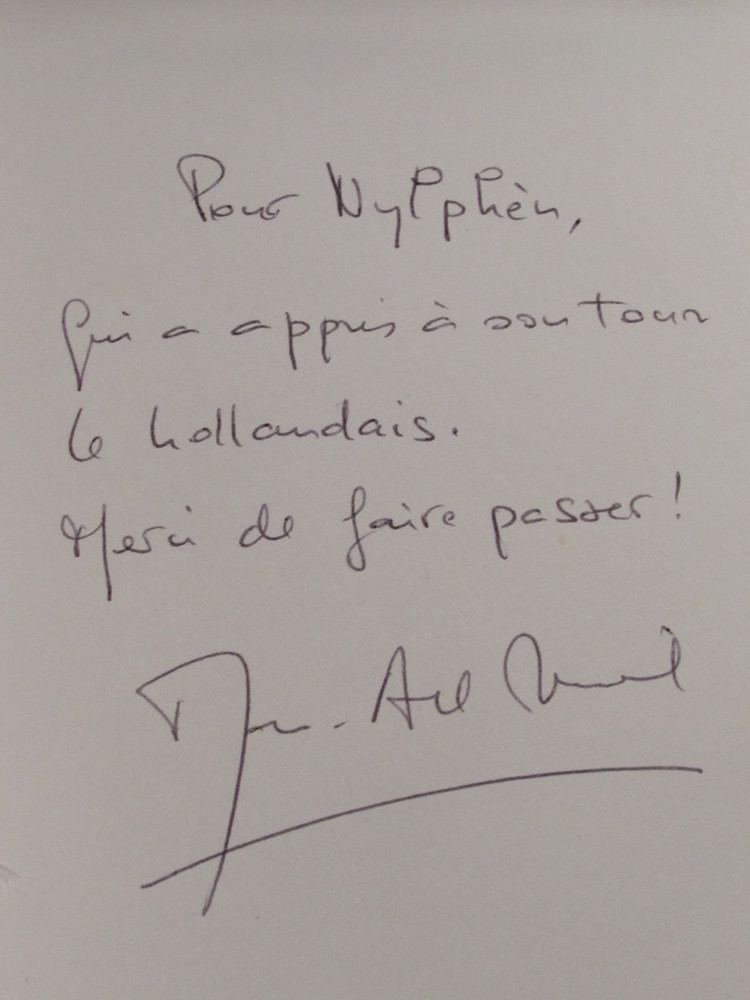 Pour Nylphèn,
qui a appris à son tour
le hollandais.
Merci de faire passer !